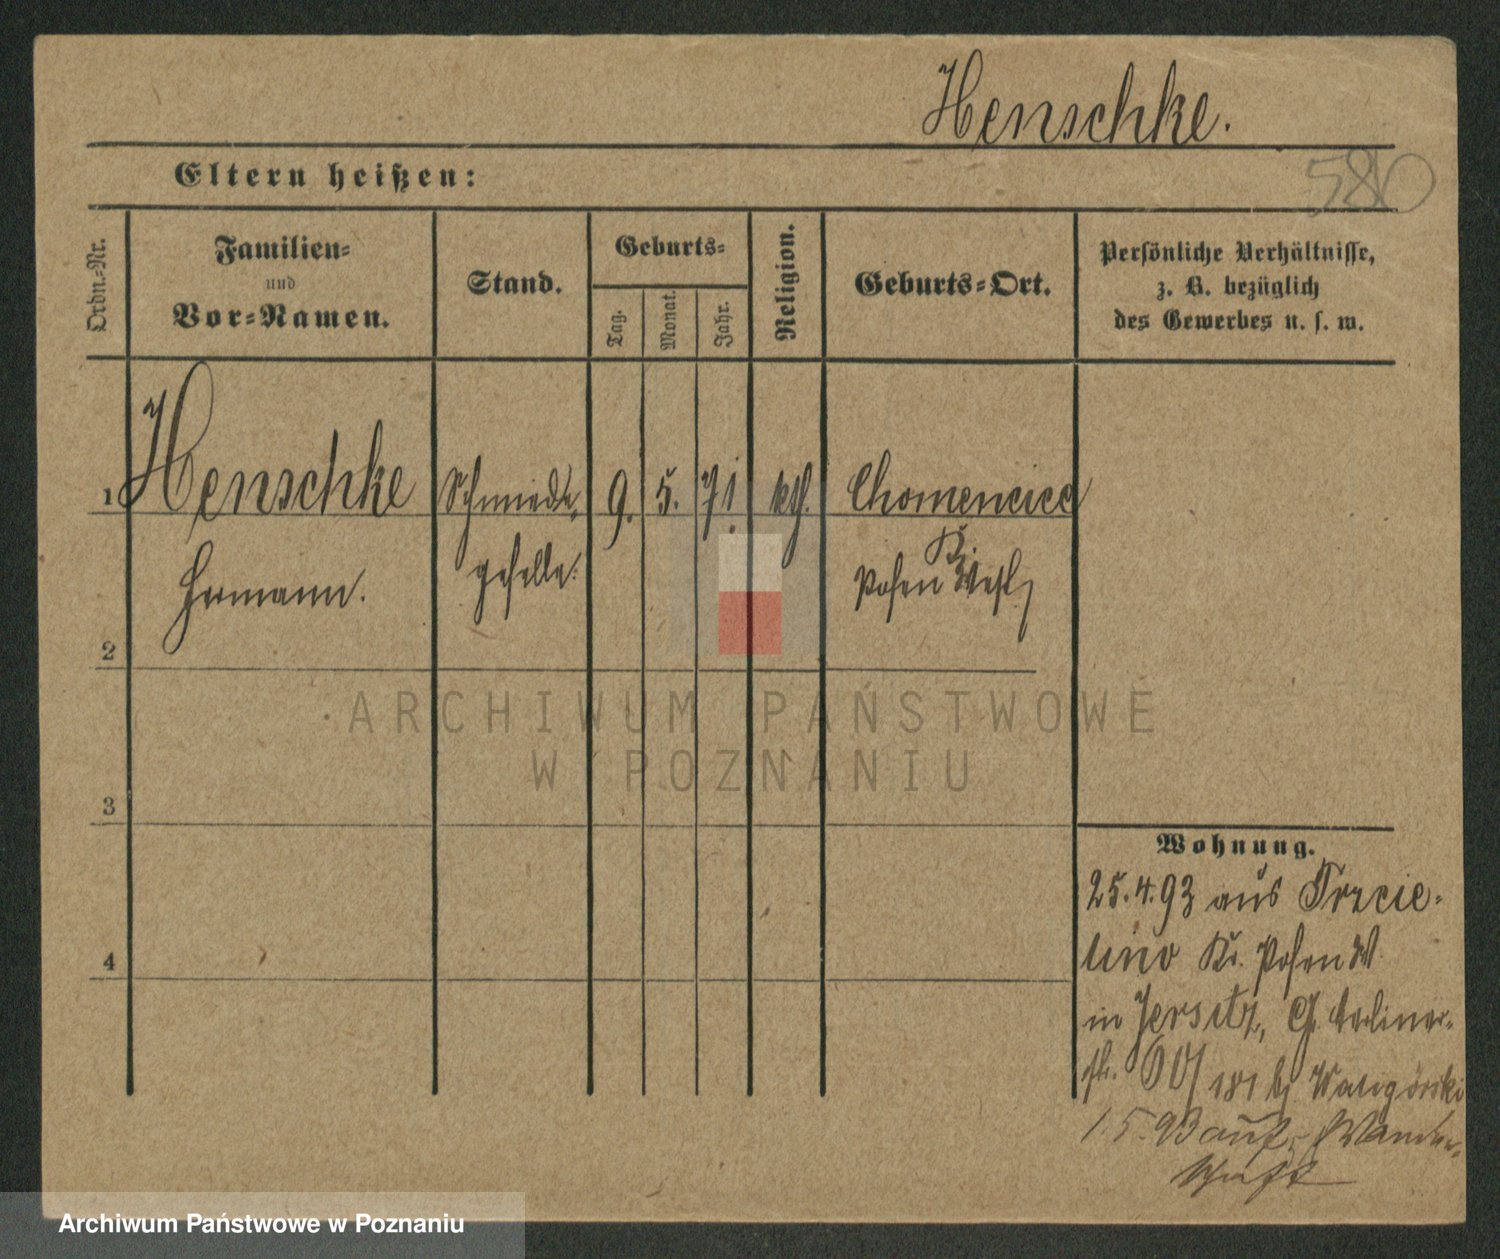 Henschke.
580
Eltern heißen:
Ordn.-Nr.
Familien-
und
Vor-Namen.
Stand.
Geburts-
Tag.
Monat.
Jahr.
Religion.
Geburts-Ort.
Persönliche Verhältnisse,
z. B. bezüglich
des Gewerbes u. s. w.
1 Henschke Schmiede- 9. 5. 71. kth. Chomencice
Kr.
Hermann. geselle. Posen West
2
3
4
ARCHIWUM PAŃSTWOWE
W POZNANIU
Wohnung.
25.4.93 aus Trzcie-
lino Kr. Posen W.
in Jersitz, Berliner-
str. 60/ 181 bj
1.5.93 auf Wander-
schaft
Archiwum Państwowe w Poznaniu